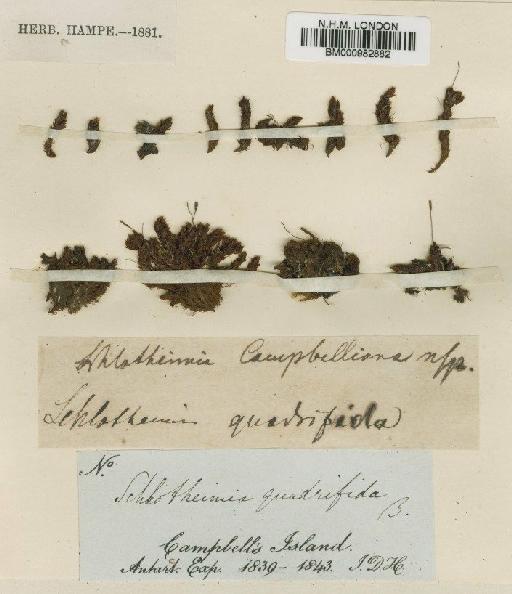 HERB. HAMPE.—1881.
N.H.M. LONDON
BM000982882
Schlotheimia Campbelliana nsp.
Schlotheimia quadrifida
No.
Schlotheimia quadrifida
β.
Campbell's Island.
Antarct. Exp. 1839–1843. J.D.H.